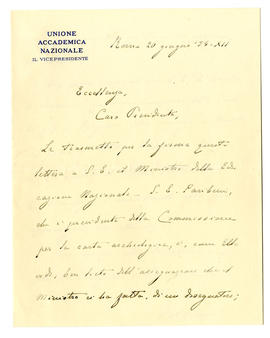 UNIONE
ACCADEMICA
NAZIONALE
IL VICEPRESIDENTE
Roma 20 giugno 1934-XII
Eccellenza,
Caro Presidente,
Le trasmetto per la firma questa
lettera a S. E. il Ministro della Edu
cazione Nazionale. S. E. Paribeni,
che è presidente della Commissione
per la carta archeologica, è, come Ella
vedrà, ben lieto dell'assegnazione che il
Ministro ci ha fatta, di un disegnatore;